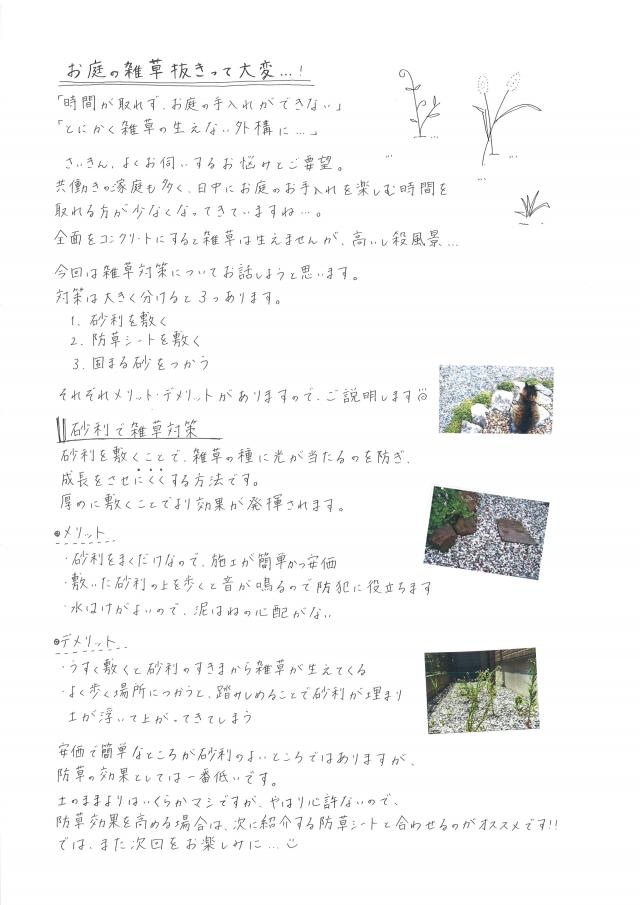 お庭の雑草抜きって大変…!
「時間が取れず、お庭の手入れができない」
「とにかく雑草の生えない外構に…」
さいきん、よくお伺いするお悩みとご要望。
共働きの家庭も多く、日中にお庭のお手入れを楽しむ時間を
取れる方が少なくなってきていますね…。
全面をコンクリートにすると雑草は生えませんが、高いし殺風景…
今回は雑草対策についてお話しようと思います。
対策は大きく分けると3つあります。
1. 砂利を敷く
2. 防草シートを敷く
3. 固まる砂をつかう
それぞれメリット・デメリットがありますので、ご説明します
砂利で雑草対策
砂利を敷くことで、雑草の種に光が当たるのを防ぎ、
成長をさせにくくする方法です。
厚めに敷くことでより効果が発揮されます。
メリット
・砂利をまくだけなので、施工が簡単かつ安価
・敷いた砂利の上を歩くと音が鳴るので防犯に役立ちます
・水はけがよいので、泥はねの心配がない
デメリット
・うすく敷くと砂利のすきまから雑草が生えてくる
・よく歩く場所につかうと、踏みしめることで砂利が埋まり
土が浮いて上がってきてしまう
安価で簡単なところが砂利のよいところではありますが、
防草の効果としては一番低いです。
土のままよりはいくらかマシですが、やはり心許ないので、
防草効果を高める場合は、次に紹介する防草シートと合わせるのがオススメです!!
では、また次回をお楽しみに…